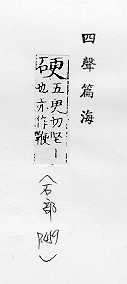 四聲篇海
硬
五更切坚｜
也亦作鞕
（石部 P.459）